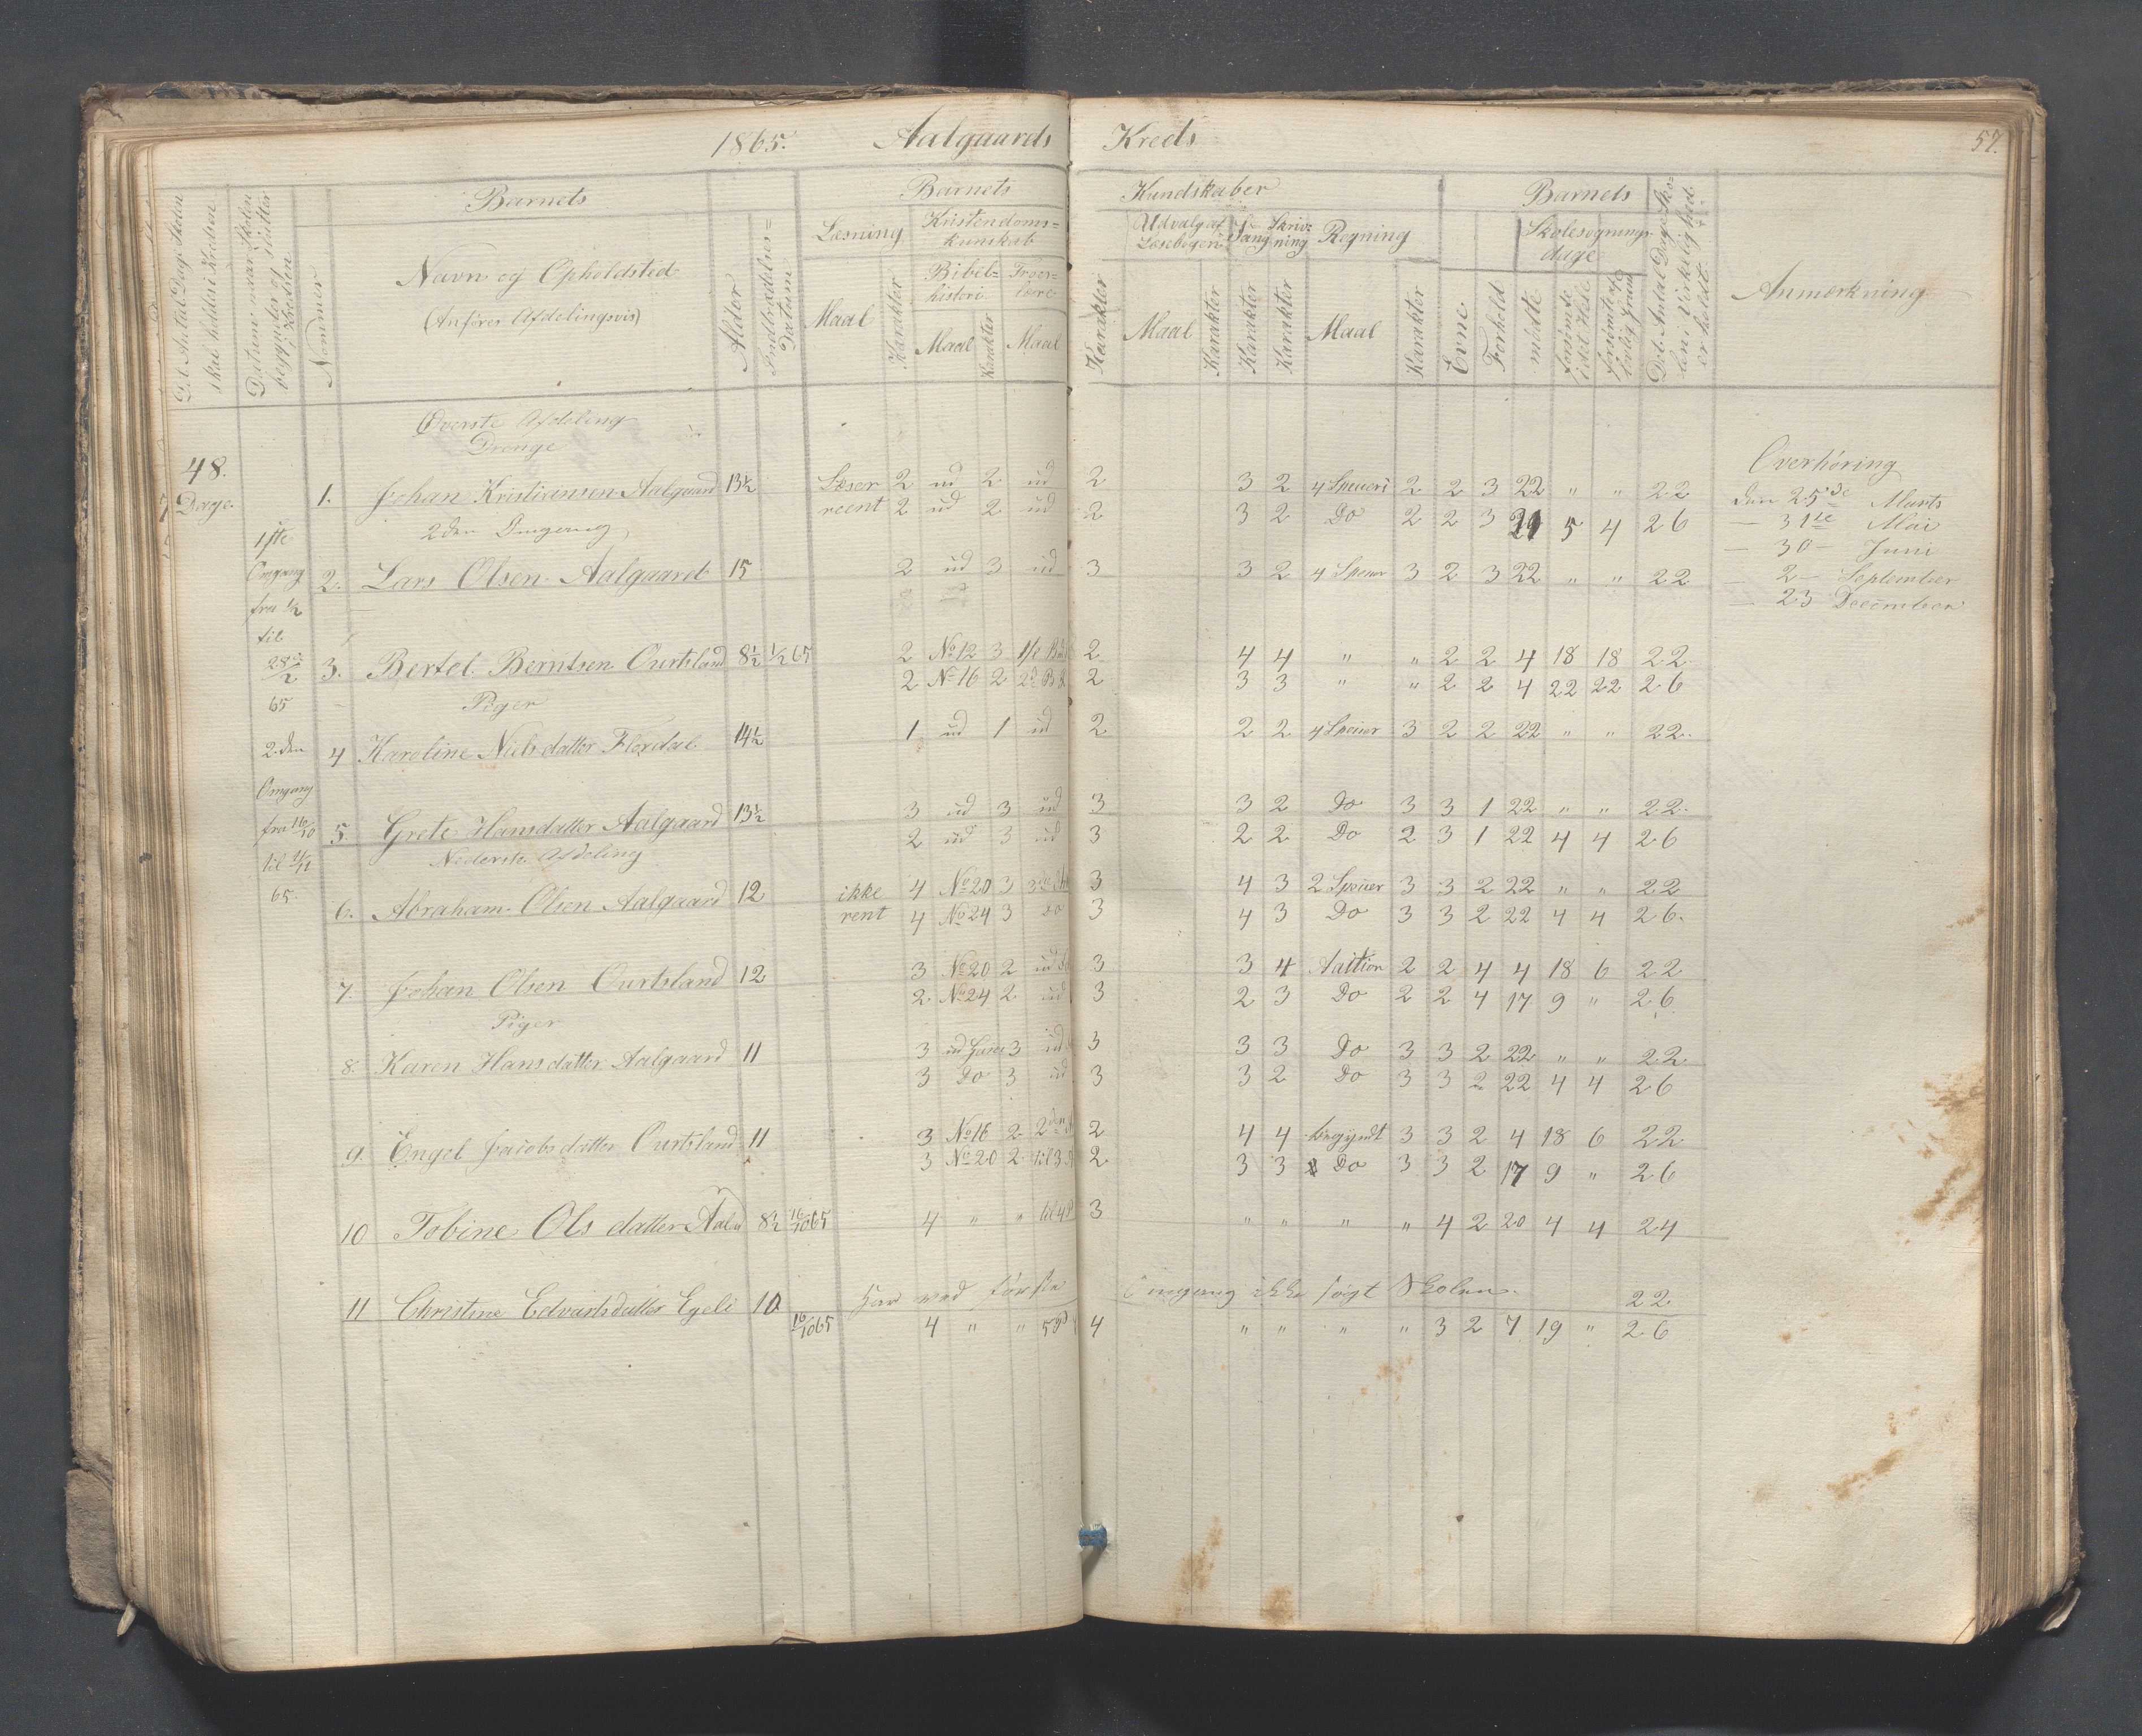 1865. Aalgaards Kreds 57.
Det Antal Dage Skolen skal holdes i Kredsen
Datoen naar Skolen begynder og slutter i Kredsen
Nommer
Barnets
Navn og Opholdsted
(Anføres Afdelingsvis)
Alder
Indtrædelses=
Datum
Barnets Kundskaber
Læsning
Maal
Karakter
Kristendoms=
kunskab
Bibel=
histori
Maal
Karakter
Troes=
lære
Maal
Karakter
Udvalg af
Læsebogen
Maal
Karakter
Sang
Karakter
Skriv=
ning
Karakter
Regning
Maal
Karakter
Barnets
Evne
Forhold
Skolesøgnings
dage
mødte
forsømte i det Hele
forsømte af lovlig Grund
Det Antal Dage Sko=
len i Virkelighed
er holdt
Anmærkning
Øverste Afdeling
Drenge
48.
Dage
1. Johan Kristiansen Aalgaard 13½ Læser 2 ud 2 ud 2 3 2 4 Speueri 2 2 3 22 " " 22
reent 2 ud 2 ud 2 3 2 Do 2 2 3 21 5 4 26
2den Omgang
2. Lars Olsen Aalgaard 15 2 ud 3 ud 3 3 2 4 Speuer 3 2 3 22 " " 22
3. Bertel Berntsen Ourtsland 8½ ½ 65 2 No 12 3 1ste 2 4 4 " " 2 2 4 18 18 22
2 No 16 2 2 3 3 " " 2 2 4 22 22 26
Piger
4 Karoline Nielsdatter Flexdal 14½ 1 ud 1 ud 2 2 2 4 Speuer 3 2 2 22 " " 22.
5. Grete Hansdatter Aalgaard 13½ 3 ud 3 ud 3 3 2 Do 3 3 1 22 " " 22.
2 ud 3 ud 3 2 2 Do 2 3 1 22 4 4 26
Nederste Afdeling
6. Abraham Olsen Aalgaard 12 ikke 4 No 20 3 3 4 3 2 Speuer 3 3 2 22 " " 22
rent 4 No 24 3 Do 3 4 3 Do 3 3 2 22 4 4 26.
7. Johan Olsen Ourtsland 12 3 No 20 2 ud 3 3 4 Aaition 2 2 4 4 18 6 22
2 No 24 2 ud 3 2 3 Do 2 2 4 17 9 " 26
Piger
8. Karen Hansdatter Aalgaard 11 3 ud 3 ud 3 3 3 Do 3 3 2 22 " " 22
3 Do 3 ud 3 3 2 Do 3 3 2 22 4 4 26
9. Engel Jacobsdatter Ourtsland 11 3 No 16 2 2den 2 4 4 begyndt 3 3 2 4 18 6 22
3 No 20 2 til 3 2 3 3 Do 3 3 2 17 9 " 26
10 Tobine Olsdatter 8½ 16/10 65 4 " " til 4 3 " " " " 4 2 20 4 4 24
11 Christine Edvartsdatter Egeli 10 Har ved første Omgang ikke søgt Skolen. 22
16/10 65 4 " " 5 4 " " " " 3 2 7 19 " 26
1ste
Omgang
fra ½
til
28/2
65
2den
Omgang
fra 16/10
til
65.
Overhøring
Den 25de Marts
— 31te Mai
— 30 — Juni
— 2 — September
— 23 December